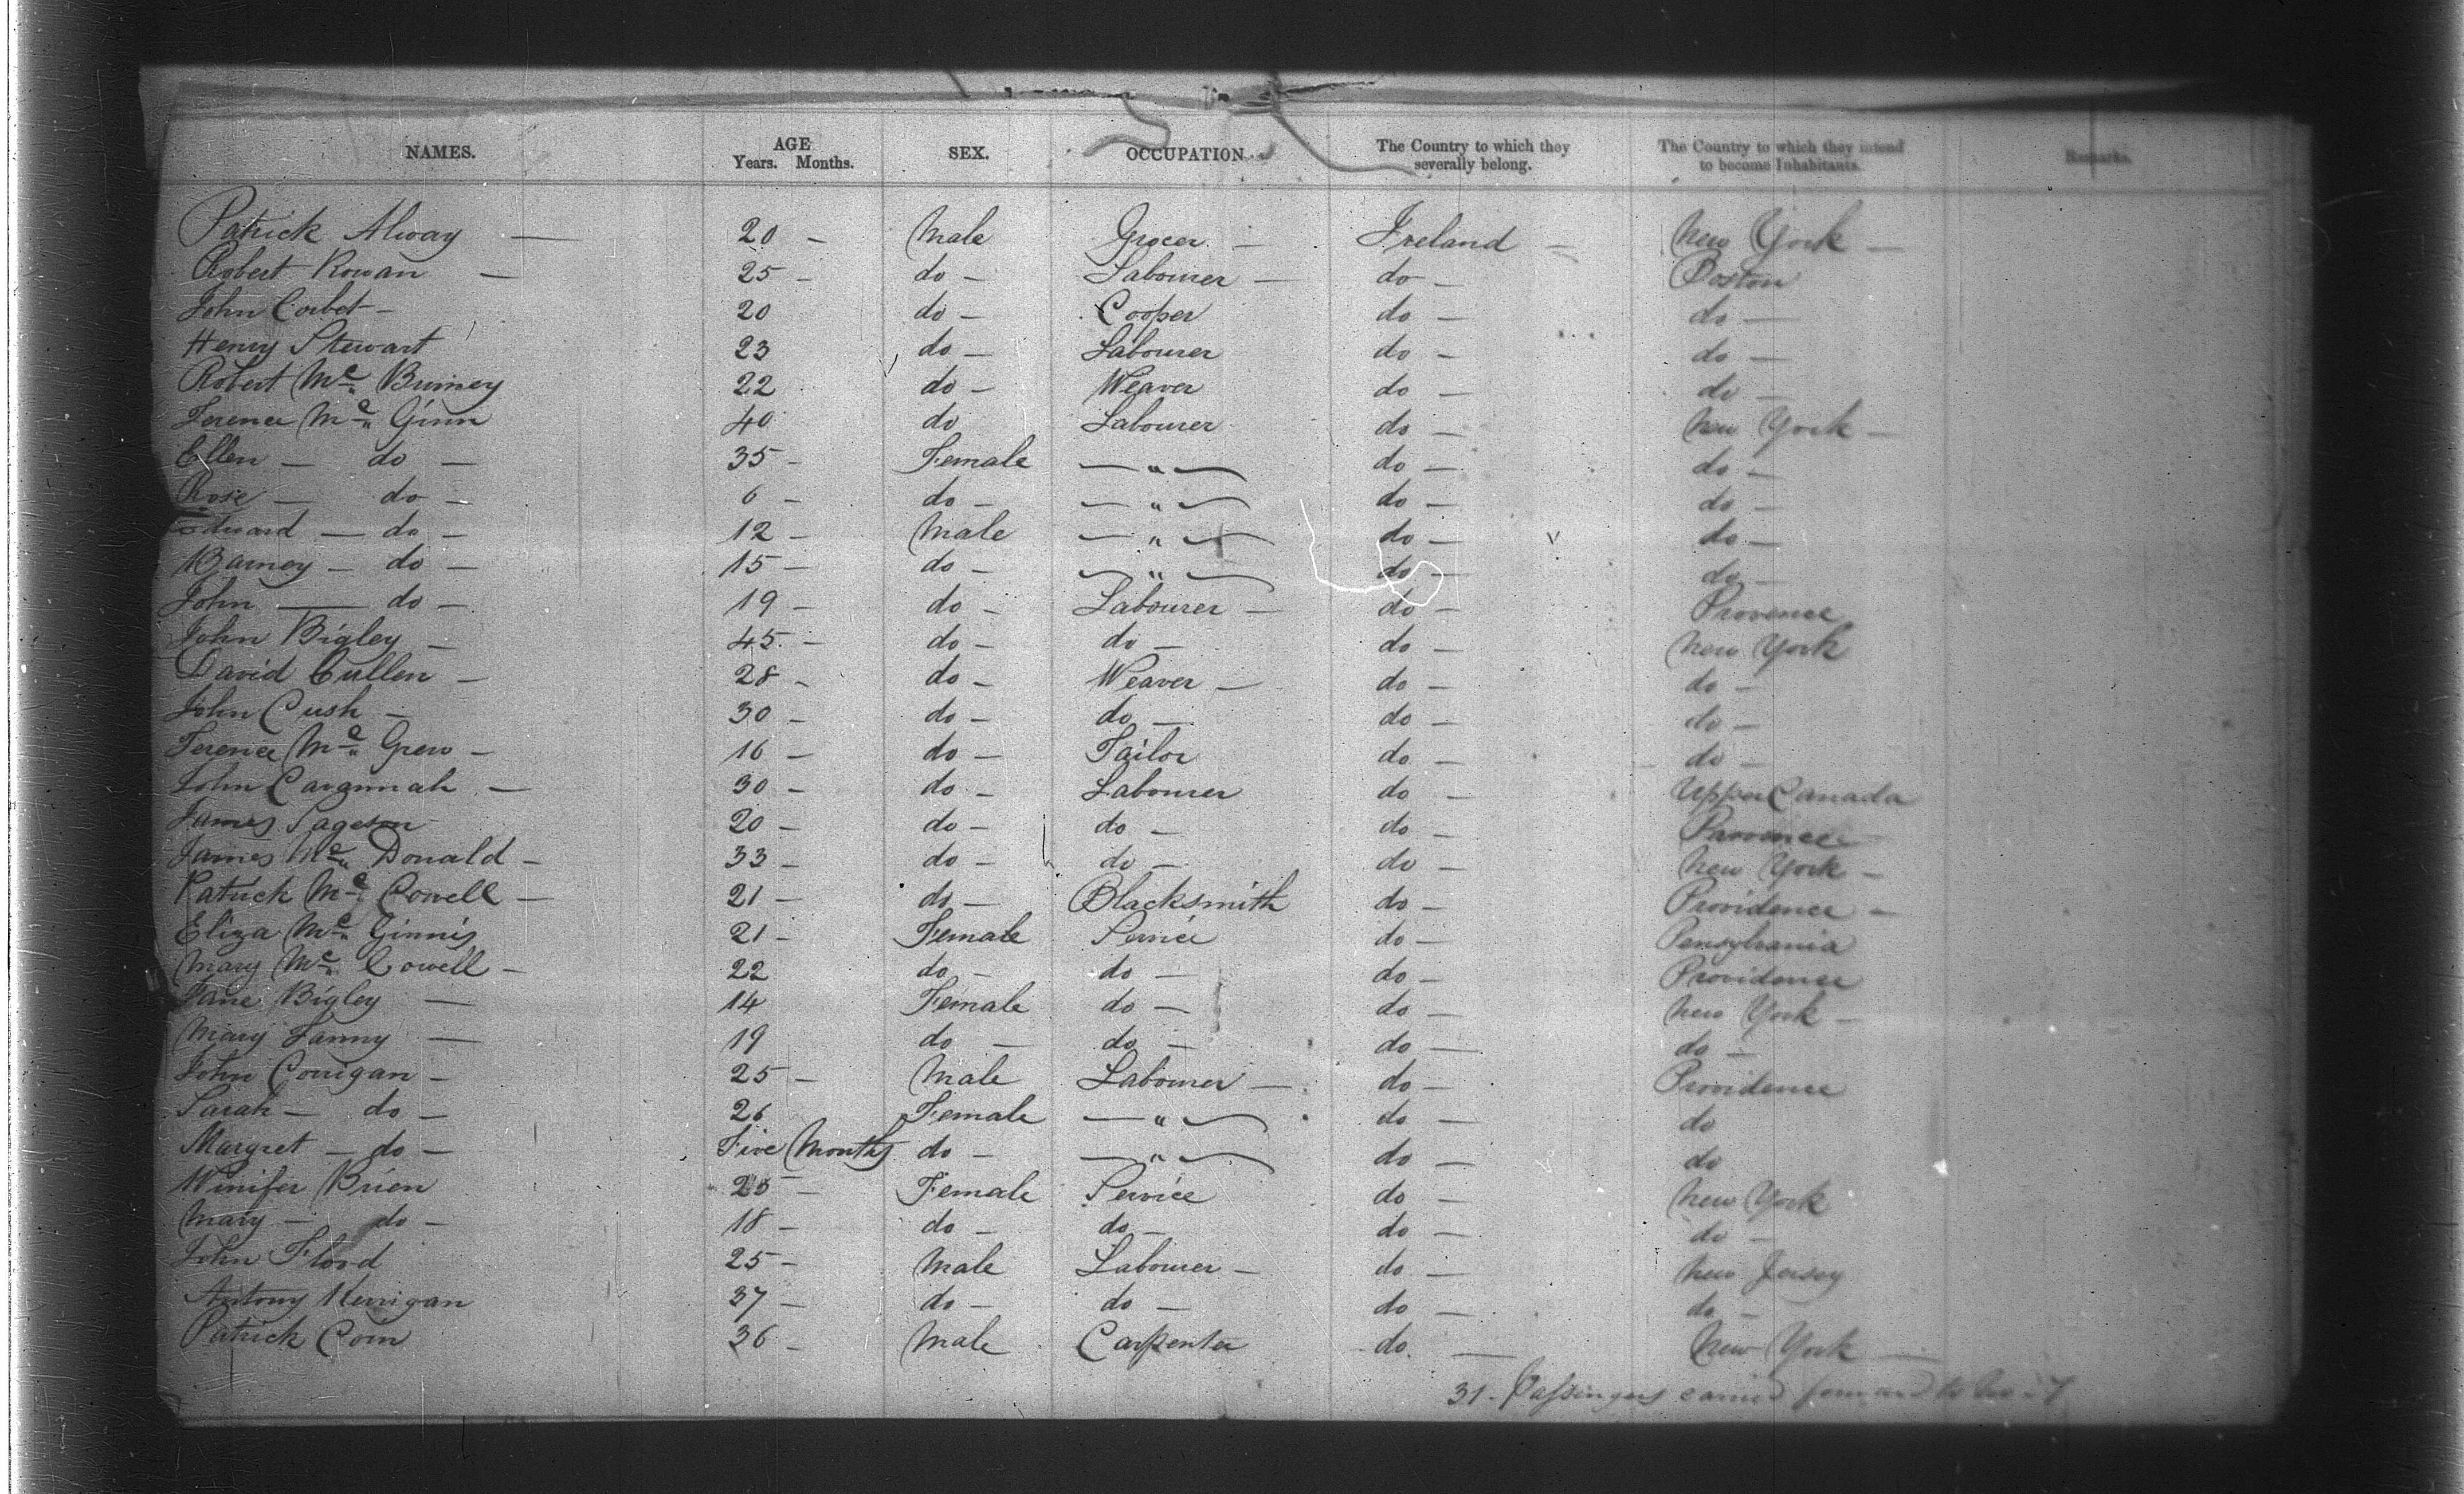 NAMES. AGE Years. Months. SEX. OCCUPATION. The Country to which they severally belong. The Country to which they intend to become Inhabitants. Remarks.
Patrick Alway — 20 – Male Grocer – Ireland – New York –
Robert Rowan — 25 – do – Labourer – do – Boston
John Corbet – 20 do – Cooper do – do –
Henry Stewart 23 do – Labourer do – do –
Robert Mc Burney 22 do – Weaver do – do –
Terence Mc Ginn 40 do Labourer do – New York –
Ellen – do – 35 – Female — " — do – do –
Rose – do – 6 – do – — " — do – do –
Edward – do – 12 – Male — " — do – do –
Barney – do – 15 – do – — " — do – do –
John — do – 19 – do – Labourer – do – Provence
John Bigley – 45 – do – do – do – New York
David Cullen – 28 – do – Weaver – do – do –
John Cush – 30 – do – do – do – do –
Terence Mc Grew – 16 – do – Tailor do – do –
John Cavannah – 30 – do – Labourer do – Upper Canada
James 20 – do – do – do –
James Mc Donald – 33 – do – do – do – New York –
Patrick Mc Cowell – 21 – do – Blacksmith do – Providence –
Eliza Mc Ginnis 21 – Female Service do – Pensylvania
Mary Mc Cowell – 22 do – do – do – Providence
Jane Bigley — 14 Female do – do – New York –
Mary Fanny — 19 do – do – do – do –
John Corrigan – 25 – Male Labourer – do – Providence
Sarah – do – 26 Female — " — do – do
Margret – do – Five Months do – — " — do – do
Winifer Brien 25 – Female Service do – New York
Mary – do – 18 – do – do – do – do –
John Flood 25 – Male Labourer – do – New Jersey
Antony Kerrigan 37 – do – do – do – do –
Patrick Coin 36 – Male Carpenter do. — New York —
31 – Passingers carried forward to